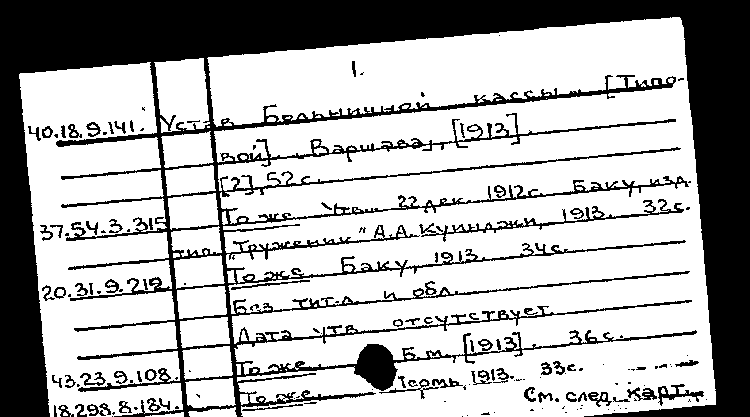 1.
40.18.9.141. Устав Больничной кассы. [Типо-
вой]. Варшава, [1913].
[2], 52 с.
37.54.3.315 То же. Утв. 22 дек. 1912 г. Баку, изд.
тип. „Труженик" А.А. Куинджи, 1913. 32 с.
20.31.9.212. То же. Баку, 1913. 34 с.
Без тит. л. и обл.
Дата утв. отсутствует.
43.23.9.108. То же. Б.м., [1913]. 36 с.
18.298.8.184. То же. Пермь, 1913. 33 с.
См. след. карт.